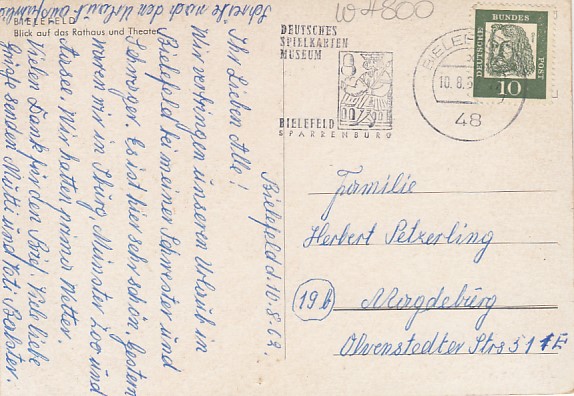 W 4800
BIELEFELD
Blick auf das Rathaus und Theater
Bielefeld d. 10.8.62.
Ihr Lieben Alle!
Wir verbringen unseren Urlaub in
Bielefeld bei meiner Schwester und
Schwager. Es ist hier sehr schön. Gestern
waren wir in Iburg, Münster Zoo und
Aasee. Wir hatten prima Wetter.
Vielen Dank für den Brief. Viele liebe
Grüße senden Mutti und Vati
Schreibe nach dem Urlaub ausführlich
DEUTSCHES
SPIELKARTEN
MUSEUM
BIELEFELD
SPARRENBURG
10.8.
48
DEUTSCHE BUNDESPOST
10
Familie
Herbert Petzerling
(19b) Magdeburg
Olvenstedter Str 51 E